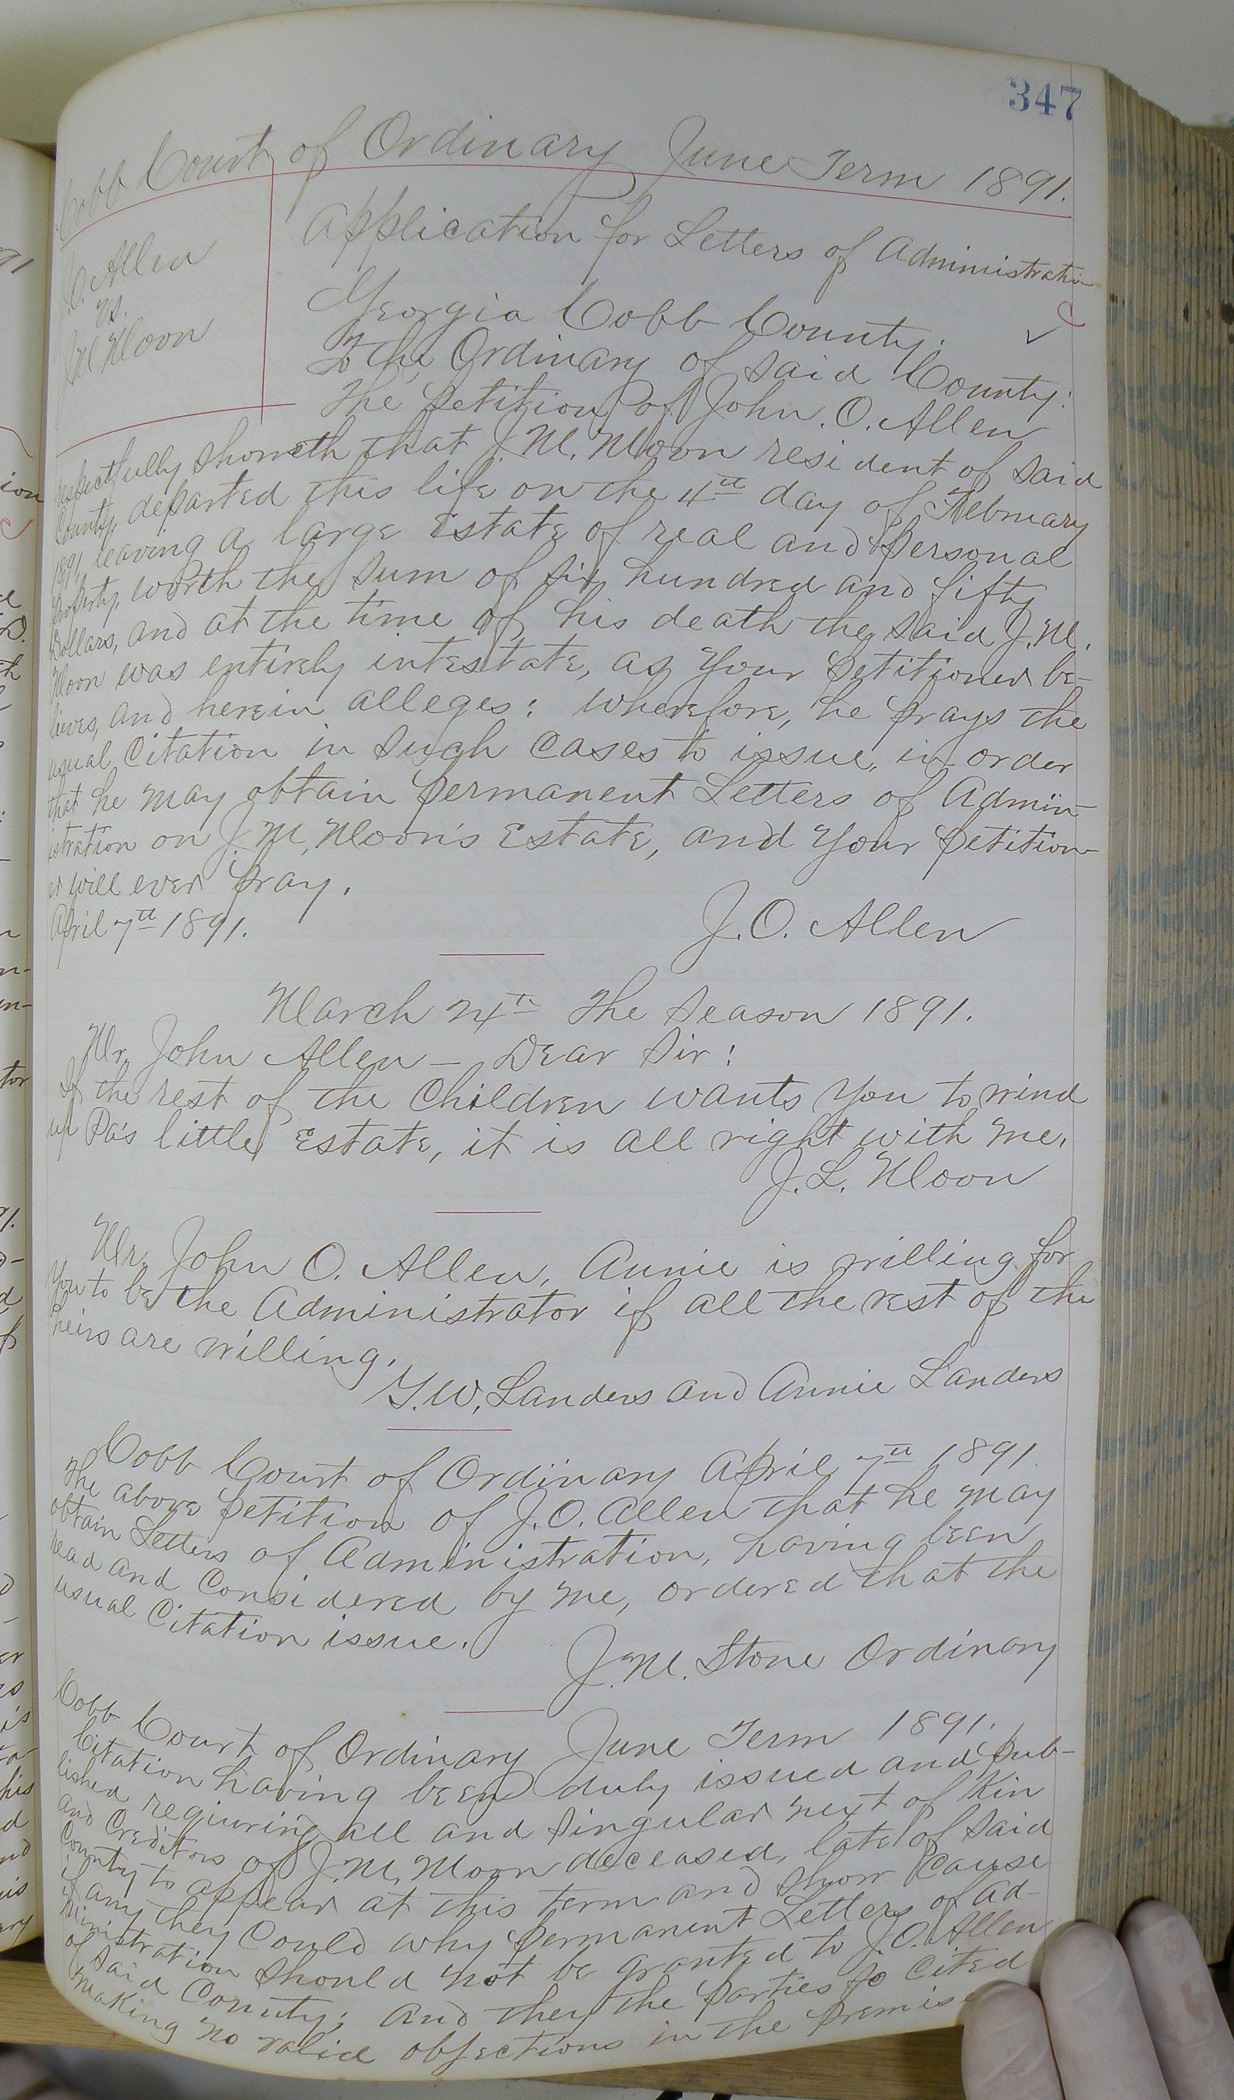 347
Cobb Court of Ordinary June Term 1891.
J.O. Allen
vs.
J M Moon
Application for Letters of Administration
Georgia Cobb County.
To the Ordinary of said County:
The Petition of John. O. Allen
respectfully showeth that J. M. Moon resident of said
County, departed this life on the 4th day of February
1891, leaving a large Estate of real and personal
Property, worth the sum of six hundred and fifty
Dollars, and at the time of his death the said J. M.
Moon was entirely intestate, as your Petitioner be-
lieves, and herein alleges: wherefore, he prays the
usual Citation in such cases to issue, in order
that he may obtain permanent Letters of Admin-
istration on J. M, Moon's Estate, and your petition-
er will ever pray.
April 7th 1891.
J. O. Allen
March 24th The Season 1891.
Mr, John Allen - Dear Sir:
If the rest of the Children wants you to wind
up Pa's little Estate, it is all right with me.
J. L. Moon
Mr. John O. Allen, Annie is willing for
you to be the Administrator if all the rest of the
heirs are willing.
G. W, Landers and Annie Landers
Cobb Court of Ordinary April 7th 1891.
The above petition of J. O. Allen that he may
obtain Letters of Administration, having been
read and Considered by me, ordered that the
usual Citation issue.
J. M. Stone Ordinary
Cobb Court of Ordinary June Term 1891.
Citation having been duly issued and pub-
lished requiring all and singular next of kin
and Creditors of J. M, Moon deceased, late of said
County to appear at this term and show cause
if any they could why permanent Letters of Ad-
ministration should not be granted to J. O. Allen
of said County; and they the parties so cited
making no valid objections in the premise